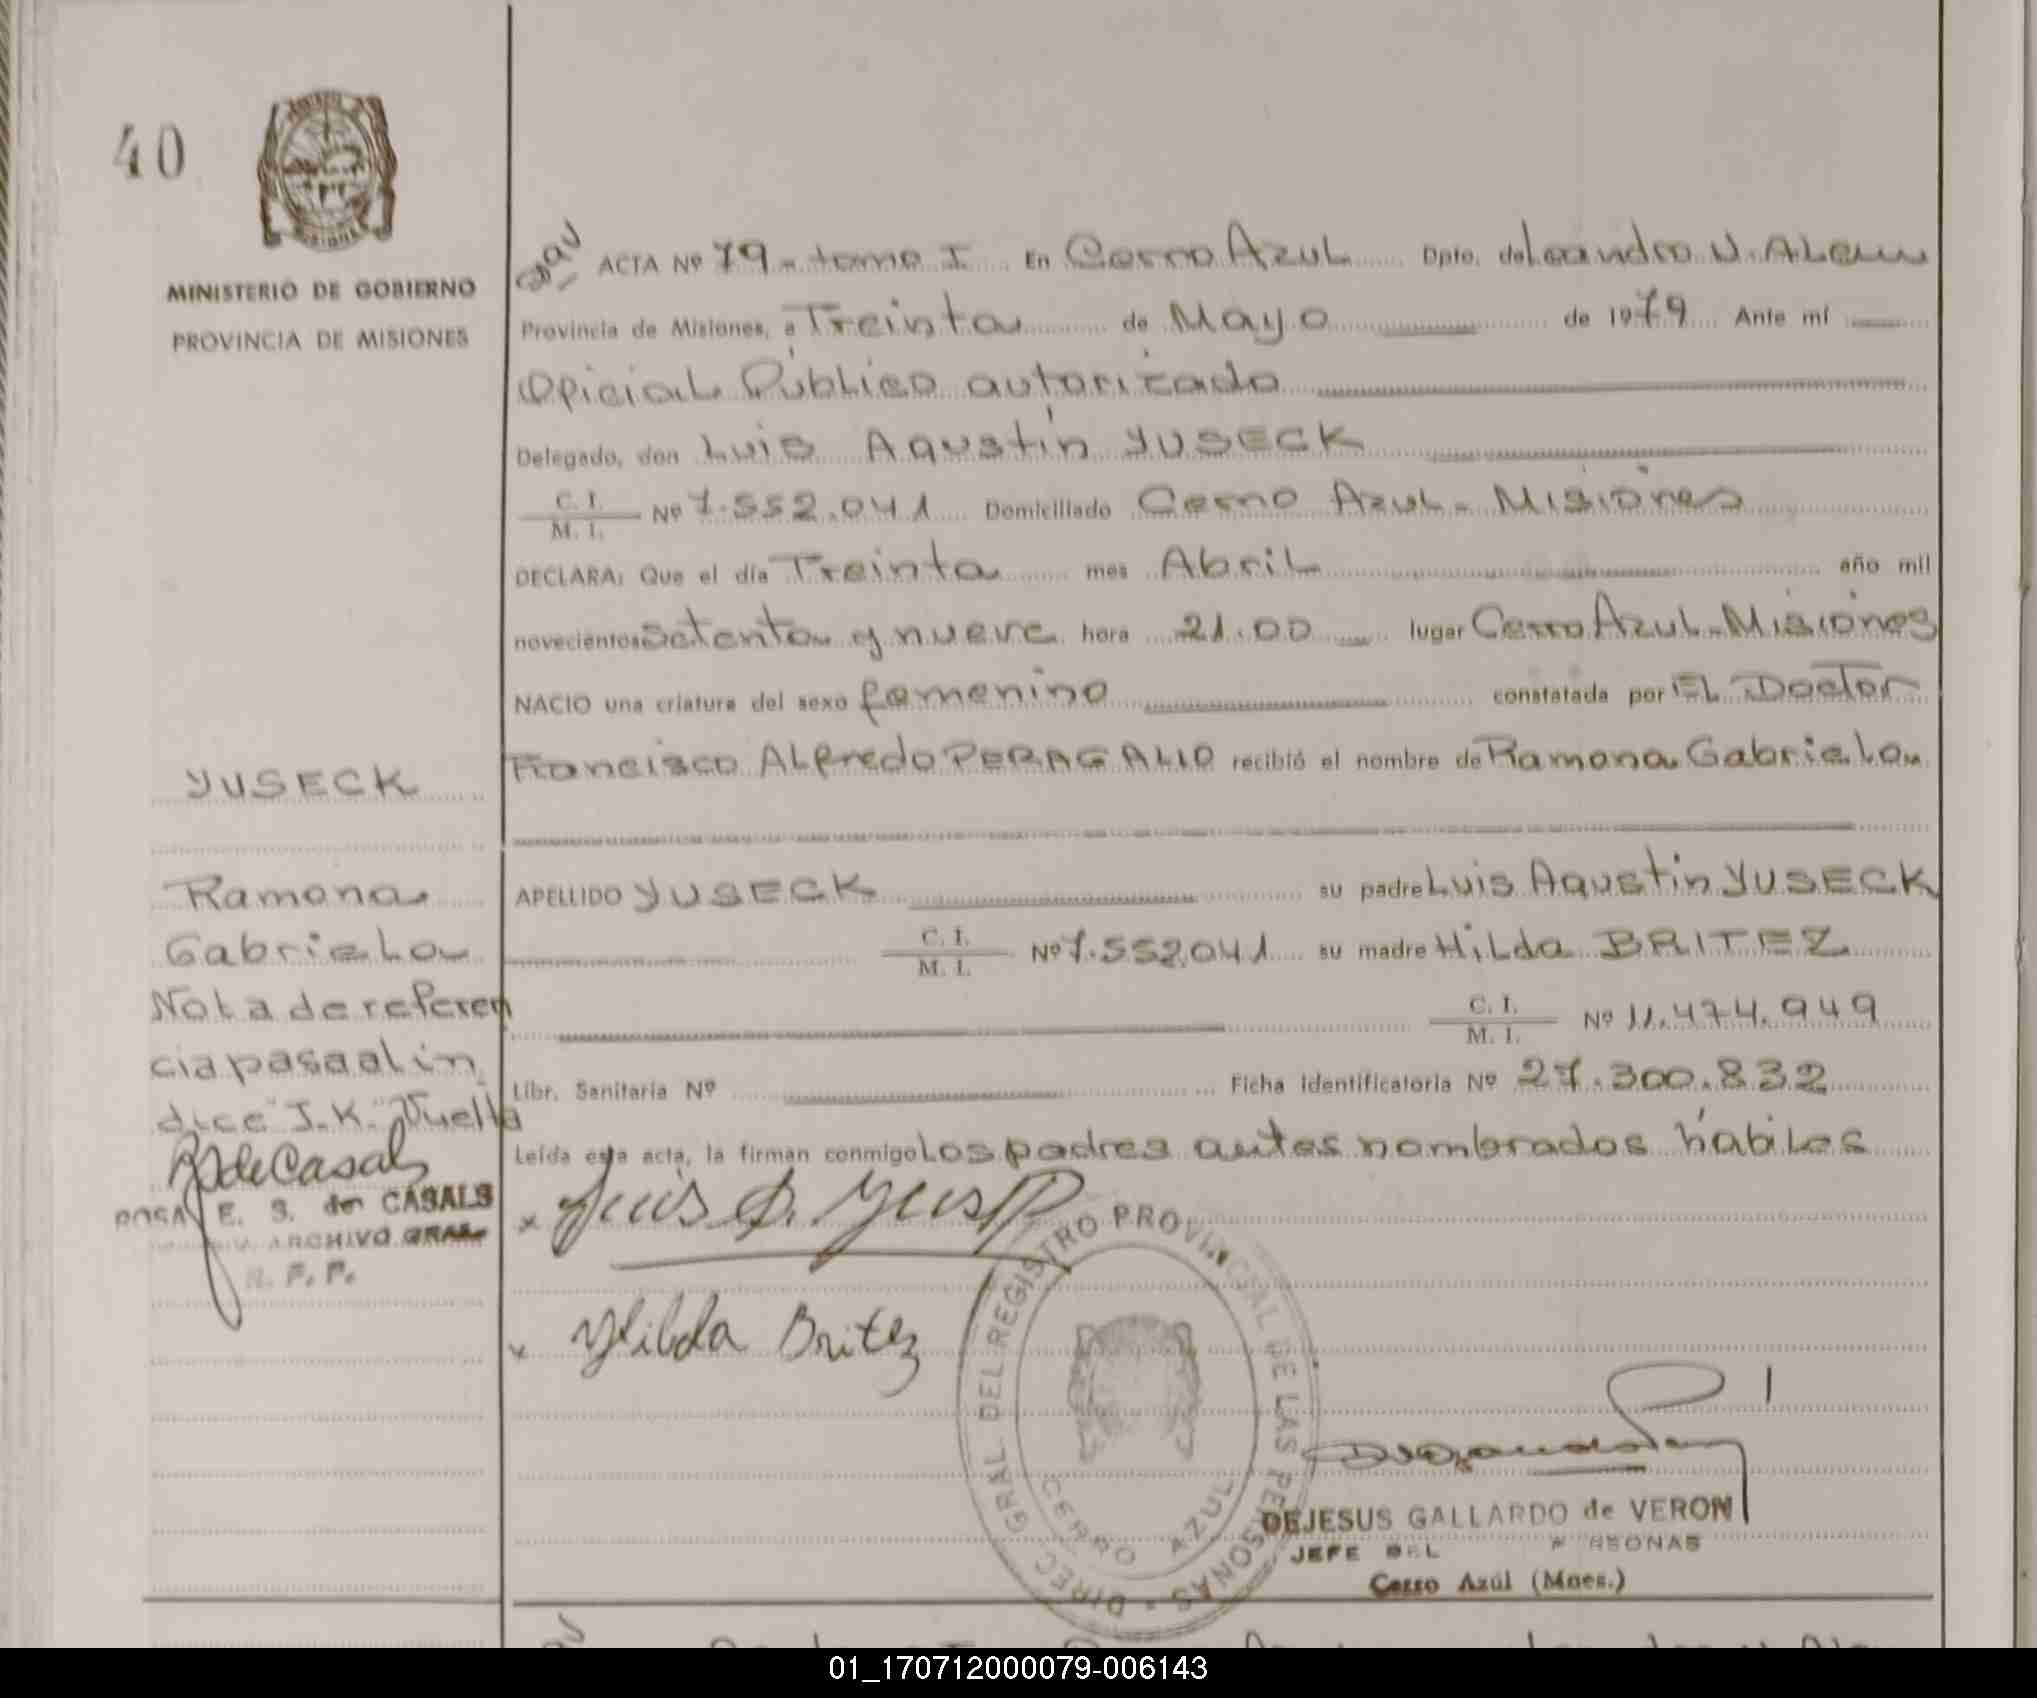 40
MINISTERIO DE GOBIERNO
PROVINCIA DE MISIONES
ACTA Nº 79 - tomo I En Cerro Azul Dpto. de Leandro N. Alem
Provincia de Misiones, a Treinta de Mayo de 1979 Ante mí
Oficial Público autorizado
Delegado, don Luis Agustín YUSECK
C. I.
M. I. Nº 7.552.041 Domiciliado Cerro Azul - Misiones
DECLARA: Que el día Treinta mes Abril año mil
novecientos setenta y nueve hora 21.00 lugar Cerro Azul - Misiones
NACIO una criatura del sexo femenino constatada por El Doctor
Francisco Alfredo PERAGALLO recibió el nombre de Ramona Gabriela
APELLIDO YUSECK su padre Luis Agustín YUSECK
C. I.
M. I. Nº 7.552.041 su madre Hilda BRITEZ
C. I.
M. I. Nº 11.474.949
Libr. Sanitaria Nº Ficha Identificatoria Nº 27.300.832
Leída esta acta, la firman conmigo Los padres antes nombrados hábiles
YUSECK
Ramona
Gabriela
Nota de referen
cia pasa al in
dice "J.K." Vuelta
RdeCasals
ROSA E. S. de CASALS
ARCHIVO GRAL
R. P. P.
x Luis A. Yusek
x Hilda Britez
DIREC. GRAL DEL REGISTRO PROVINCIAL DE LAS PERSONAS
CERRO AZUL
DEJESUS GALLARDO de VERON
JEFE DEL RSONAS
Cerro Azúl (Mnes.)
01_170712000079-006143